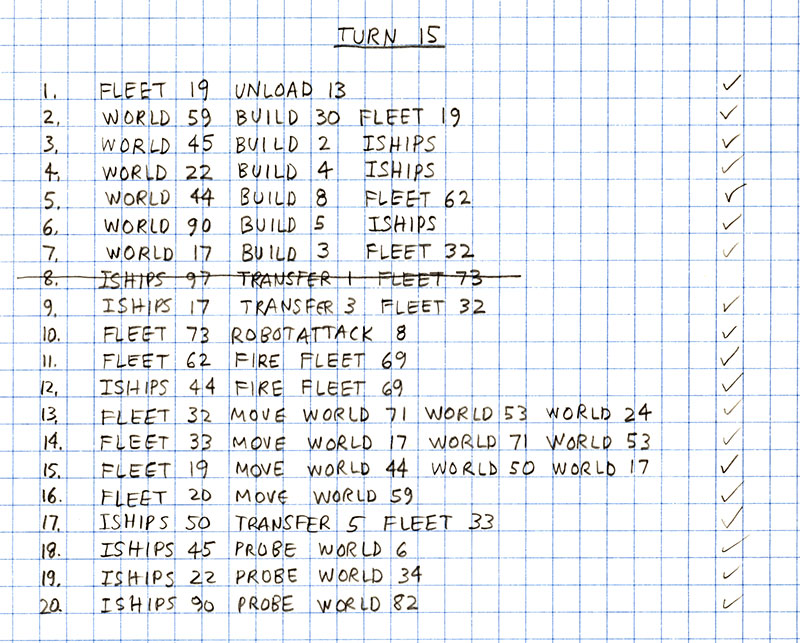 TURN 15
1. FLEET 19 UNLOAD 13 ✓
2. WORLD 59 BUILD 30 FLEET 19 ✓
3. WORLD 45 BUILD 2 ISHIPS ✓
4. WORLD 22 BUILD 4 ISHIPS ✓
5. WORLD 44 BUILD 8 FLEET 62 ✓
6. WORLD 90 BUILD 5 ISHIPS ✓
7. WORLD 17 BUILD 3 FLEET 32 ✓
8. ISHIPS 97 TRANSFER 1 FLEET 73
9. ISHIPS 17 TRANSFER 3 FLEET 32 ✓
10. FLEET 73 ROBOTATTACK 8 ✓
11. FLEET 62 FIRE FLEET 69 ✓
12. ISHIPS 44 FIRE FLEET 69 ✓
13. FLEET 32 MOVE WORLD 71 WORLD 53 WORLD 24 ✓
14. FLEET 33 MOVE WORLD 17 WORLD 71 WORLD 53 ✓
15. FLEET 19 MOVE WORLD 44 WORLD 50 WORLD 17 ✓
16. FLEET 20 MOVE WORLD 59 ✓
17. ISHIPS 50 TRANSFER 5 FLEET 33 ✓
18. ISHIPS 45 PROBE WORLD 6 ✓
19. ISHIPS 22 PROBE WORLD 34 ✓
20. ISHIPS 90 PROBE WORLD 82 ✓